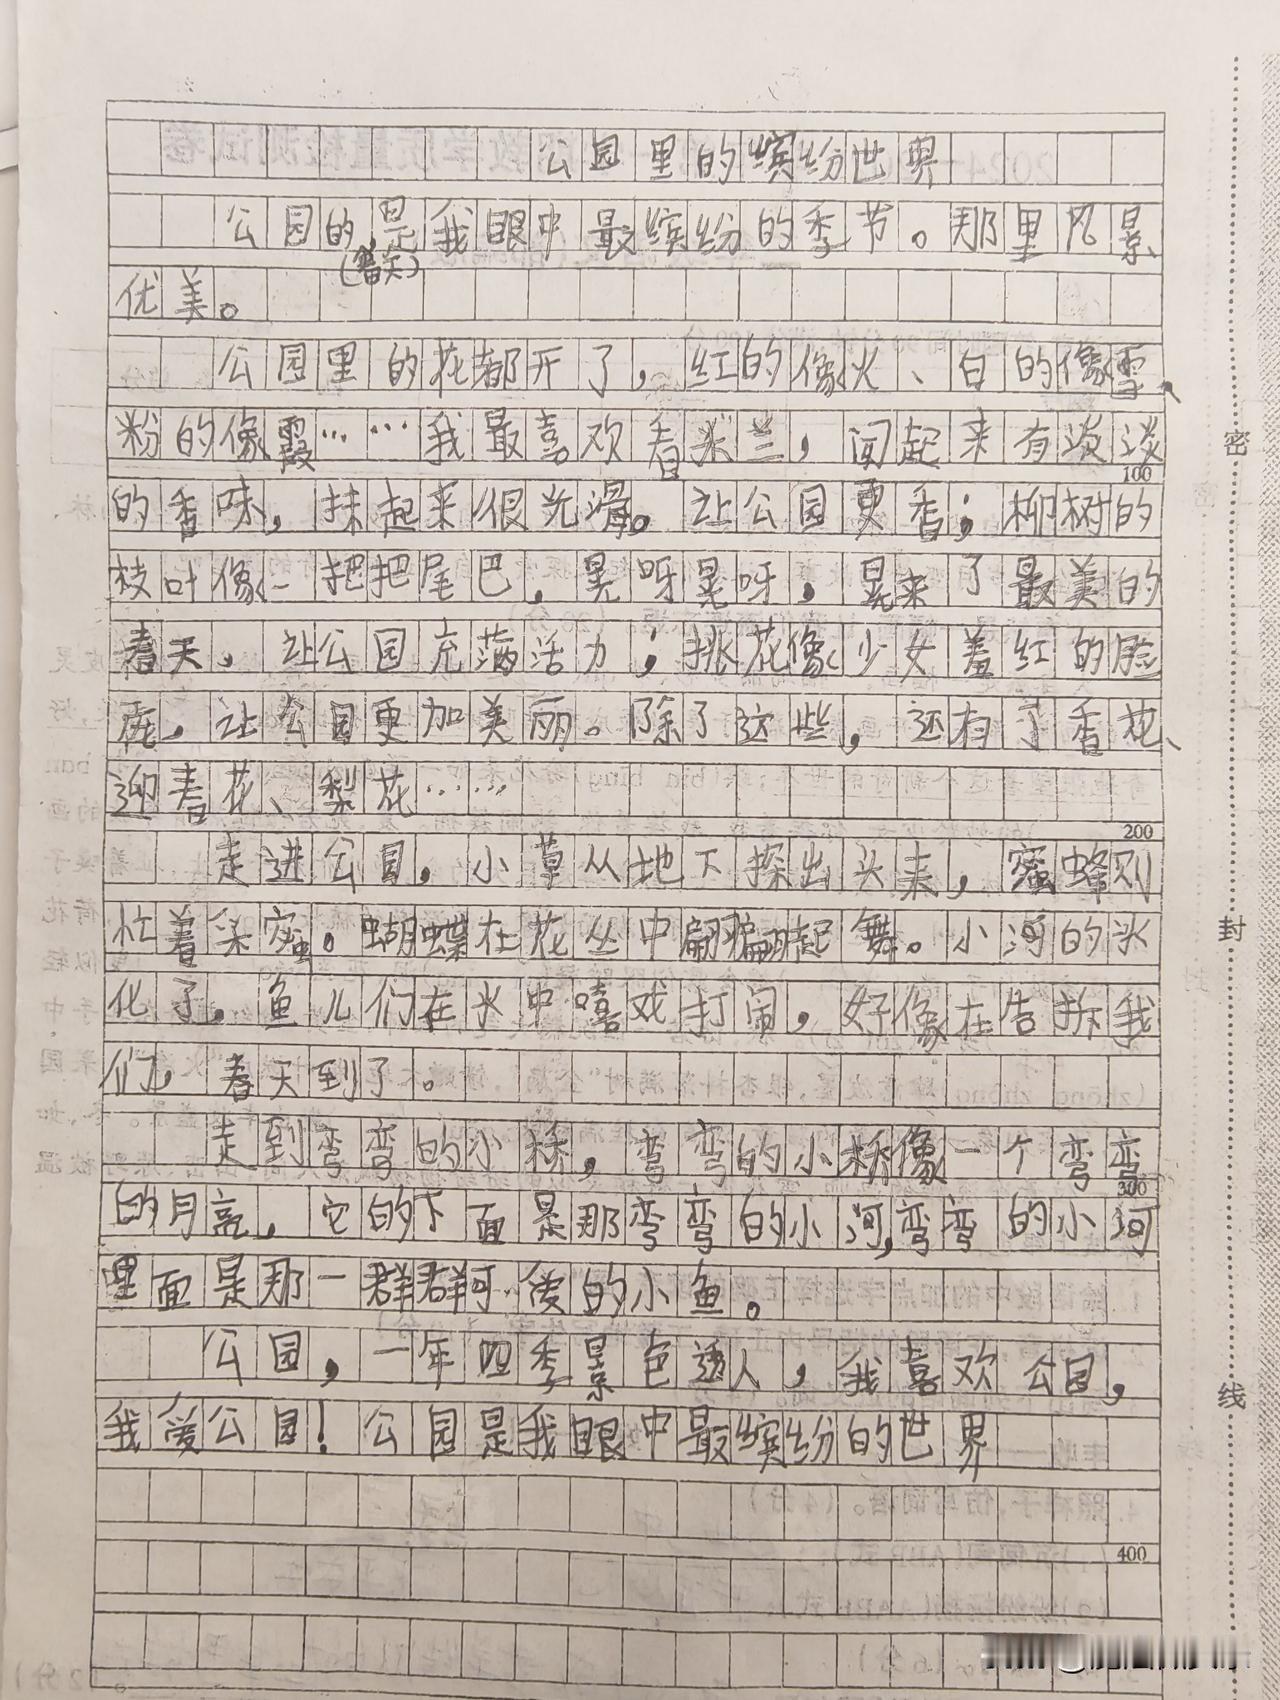 公园里的缤纷世界
公园的是我眼中最缤纷的季节。那里风景
(春天)
优美。
公园里的花都开了，红的像火、白的像雪、
粉的像霞……我最喜欢看米兰，闻起来有淡淡
100
的香味，抹起来很光滑。让公园更香；柳树的
枝叶像一把把尾巴，晃呀晃呀，晃来了最美的
春天，让公园充满活力；挑花像少女羞红的脸
庞，让公园更加美丽。除了这些，还有丁香花、
迎春花、梨花……
200
走进公园，小草从地下探出头来，蜜蜂则
忙着采蜜。蝴蝶在花丛中翩翩起舞。小河的冰
化了，鱼儿们在水中嘻戏打闹，好像在告拆我
们，春天到了。
走到弯弯的小桥，弯弯的小桥像一个弯弯
300
的月亮，它的下面是那弯弯的小河，弯弯的小河
里面是那一群群可爱的小鱼。
公园，一年四季景色透人，我喜欢公园，
我爱公园！公园是我眼中最缤纷的世界
400
密
封
线